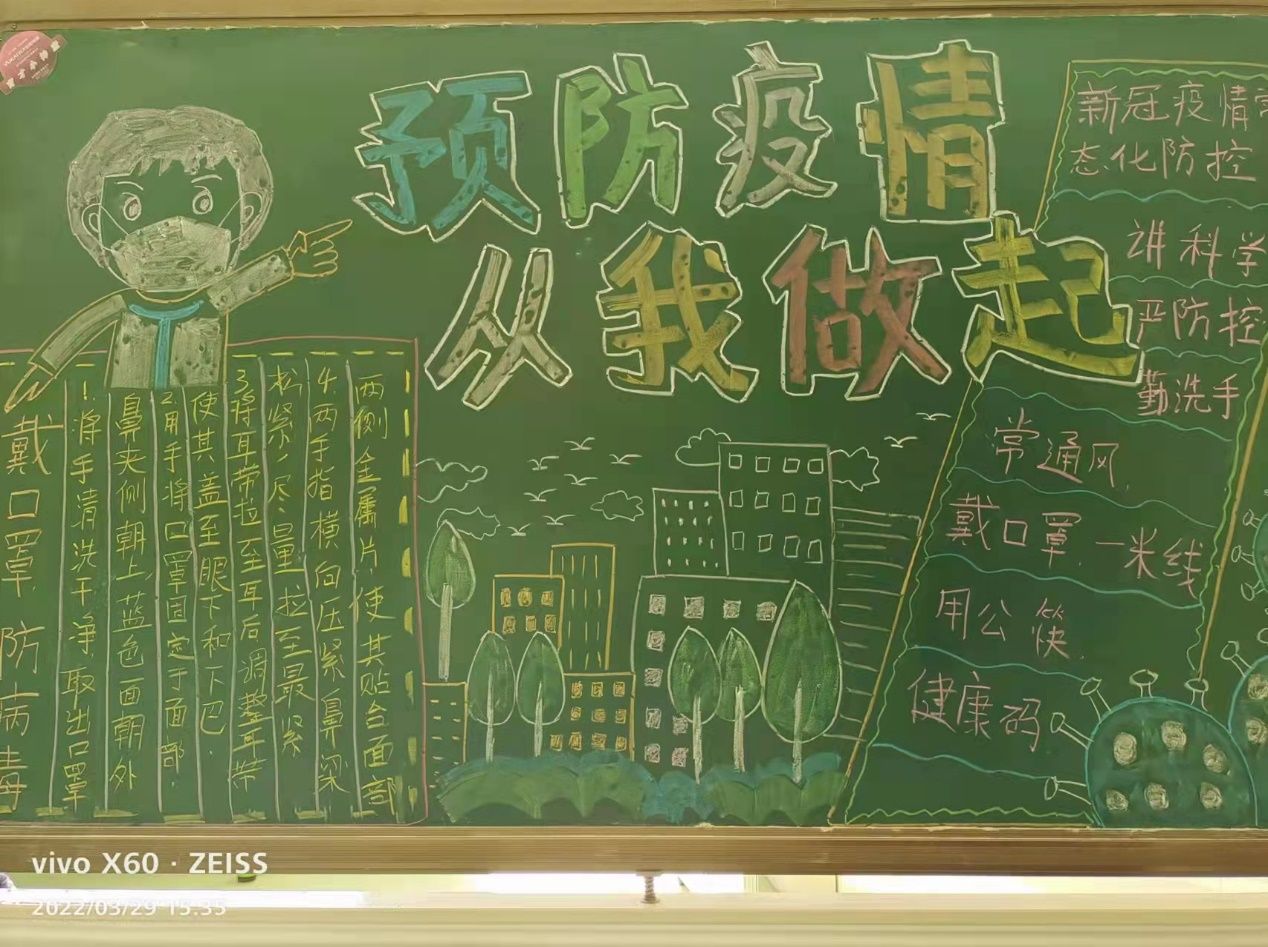 预防疫情
从我做起
戴口罩,防病毒
1.将手清洗干净,取出口罩
鼻夹侧朝上,蓝色面朝外
2.用手将口罩固定于面部,
使其盖至眼下和下巴.
3.将耳带拉至耳后,调整耳带
松紧,尽量拉至最紧
4.两手指横向压紧鼻梁
两侧金属片,使其贴合面部
新冠疫情常
态化防控
讲科学
严防控
勤洗手
常通风,
戴口罩,一米线
用公筷,
健康码.
vivo X60 · ZEISS
2022/03/29 15:35